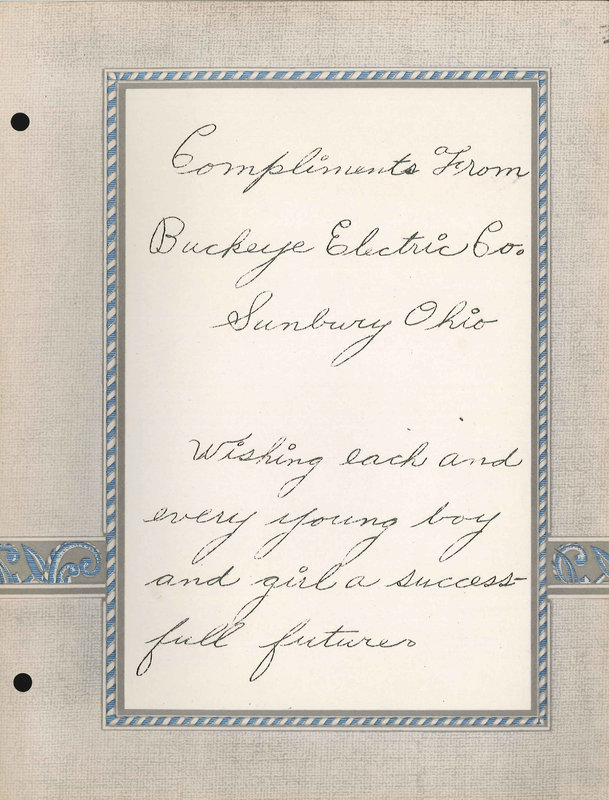 Compliments From
Buckeye Electric Co.
Sunbury Ohio
Wishing each and
every young boy
and girl a success-
full future.